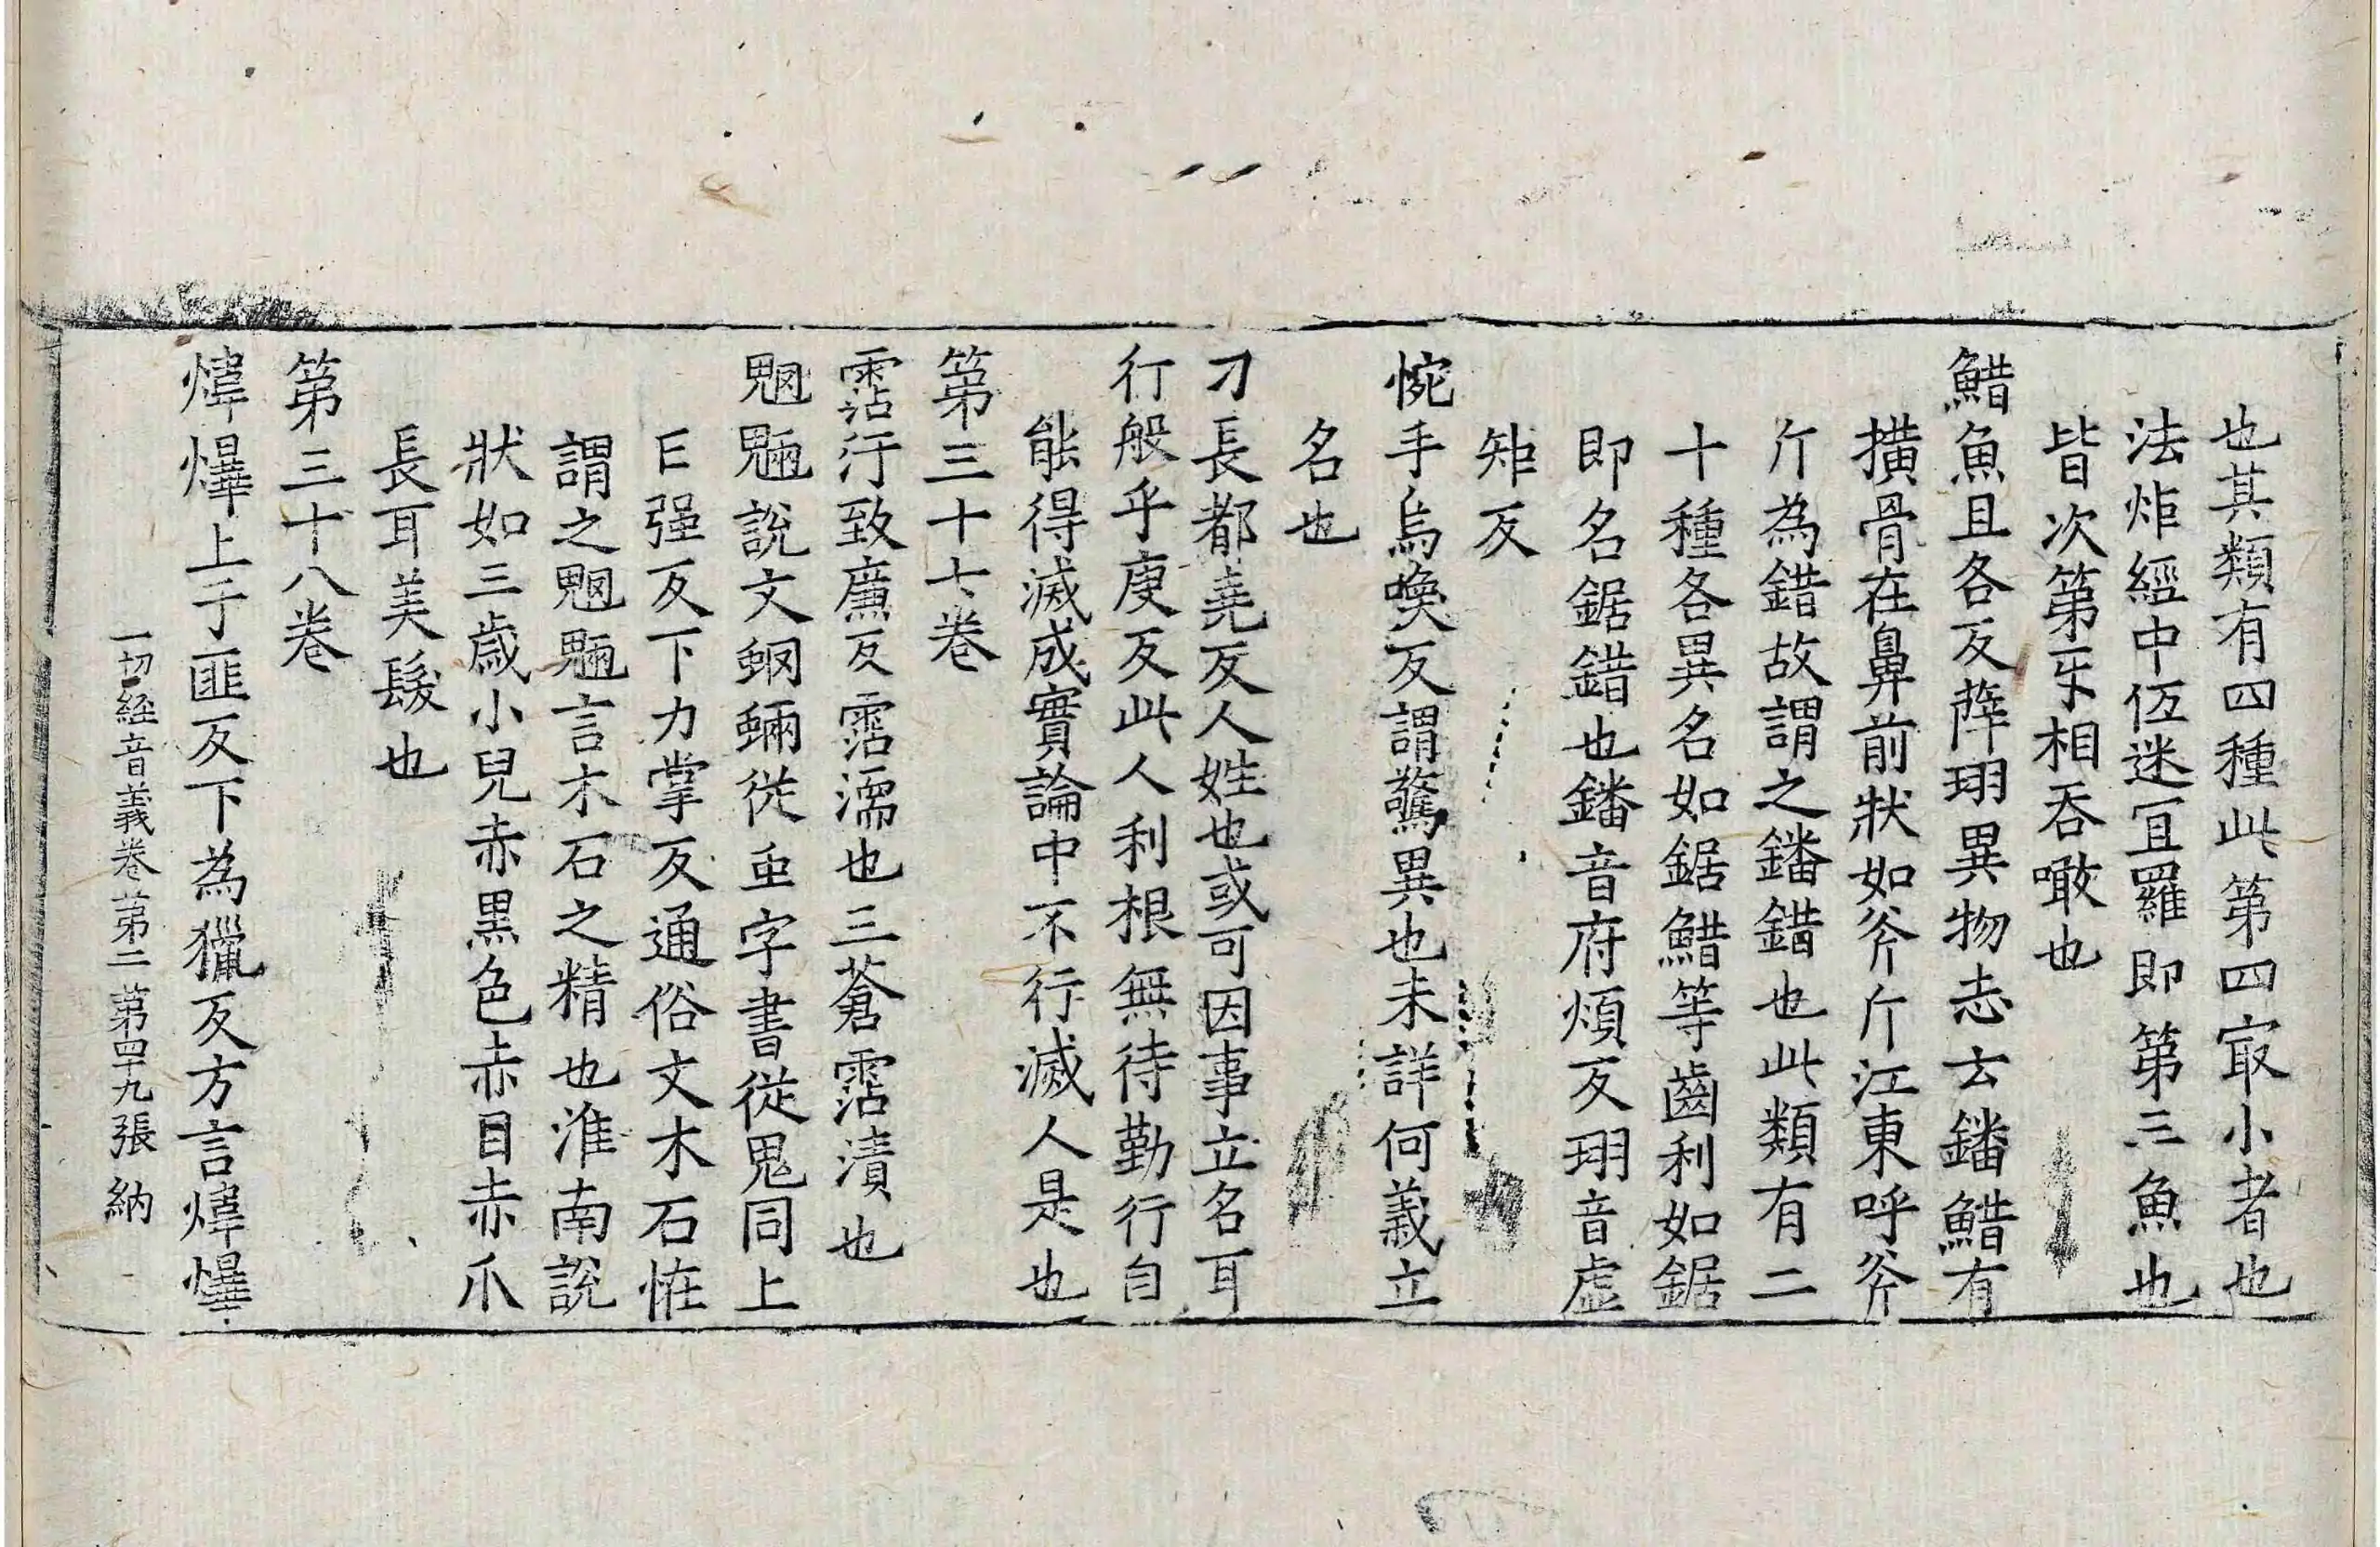 也其類有四種此第四㝡小者也
法炬經中伍迷冝羅即第三魚也
皆次第牙相吞噉也
䱜魚且各反薛珝異物志云鐇䱜有
撗骨在鼻前狀如斧斤江東呼斧
斤為錯故謂之鐇錯也此類有二
十種各異名如鋸䱜等齒利如鋸
即名鋸錯也鐇音府煩反珝音虛
矩反
惋手烏喚反謂驚異也未詳何義立
名也
刁長都堯反人姓也或可因事立名耳
行般乎庚反此人利根無待勤行自
能得滅成實論中不行滅人是也
第三十七卷
霑汙致廉反霑濡也三蒼霑漬也
魍魎說文蛧蜽從虫字書從鬼同上
亡强反下力掌反通俗文木石恠
謂之魍魎言木石之精也淮南說
狀如三歲小兒赤黑色赤目赤爪
長耳美髮也
第三十八卷
煒燁上于匪反下為獵反方言煒燁
一切經音義卷第二 第四十九張 納